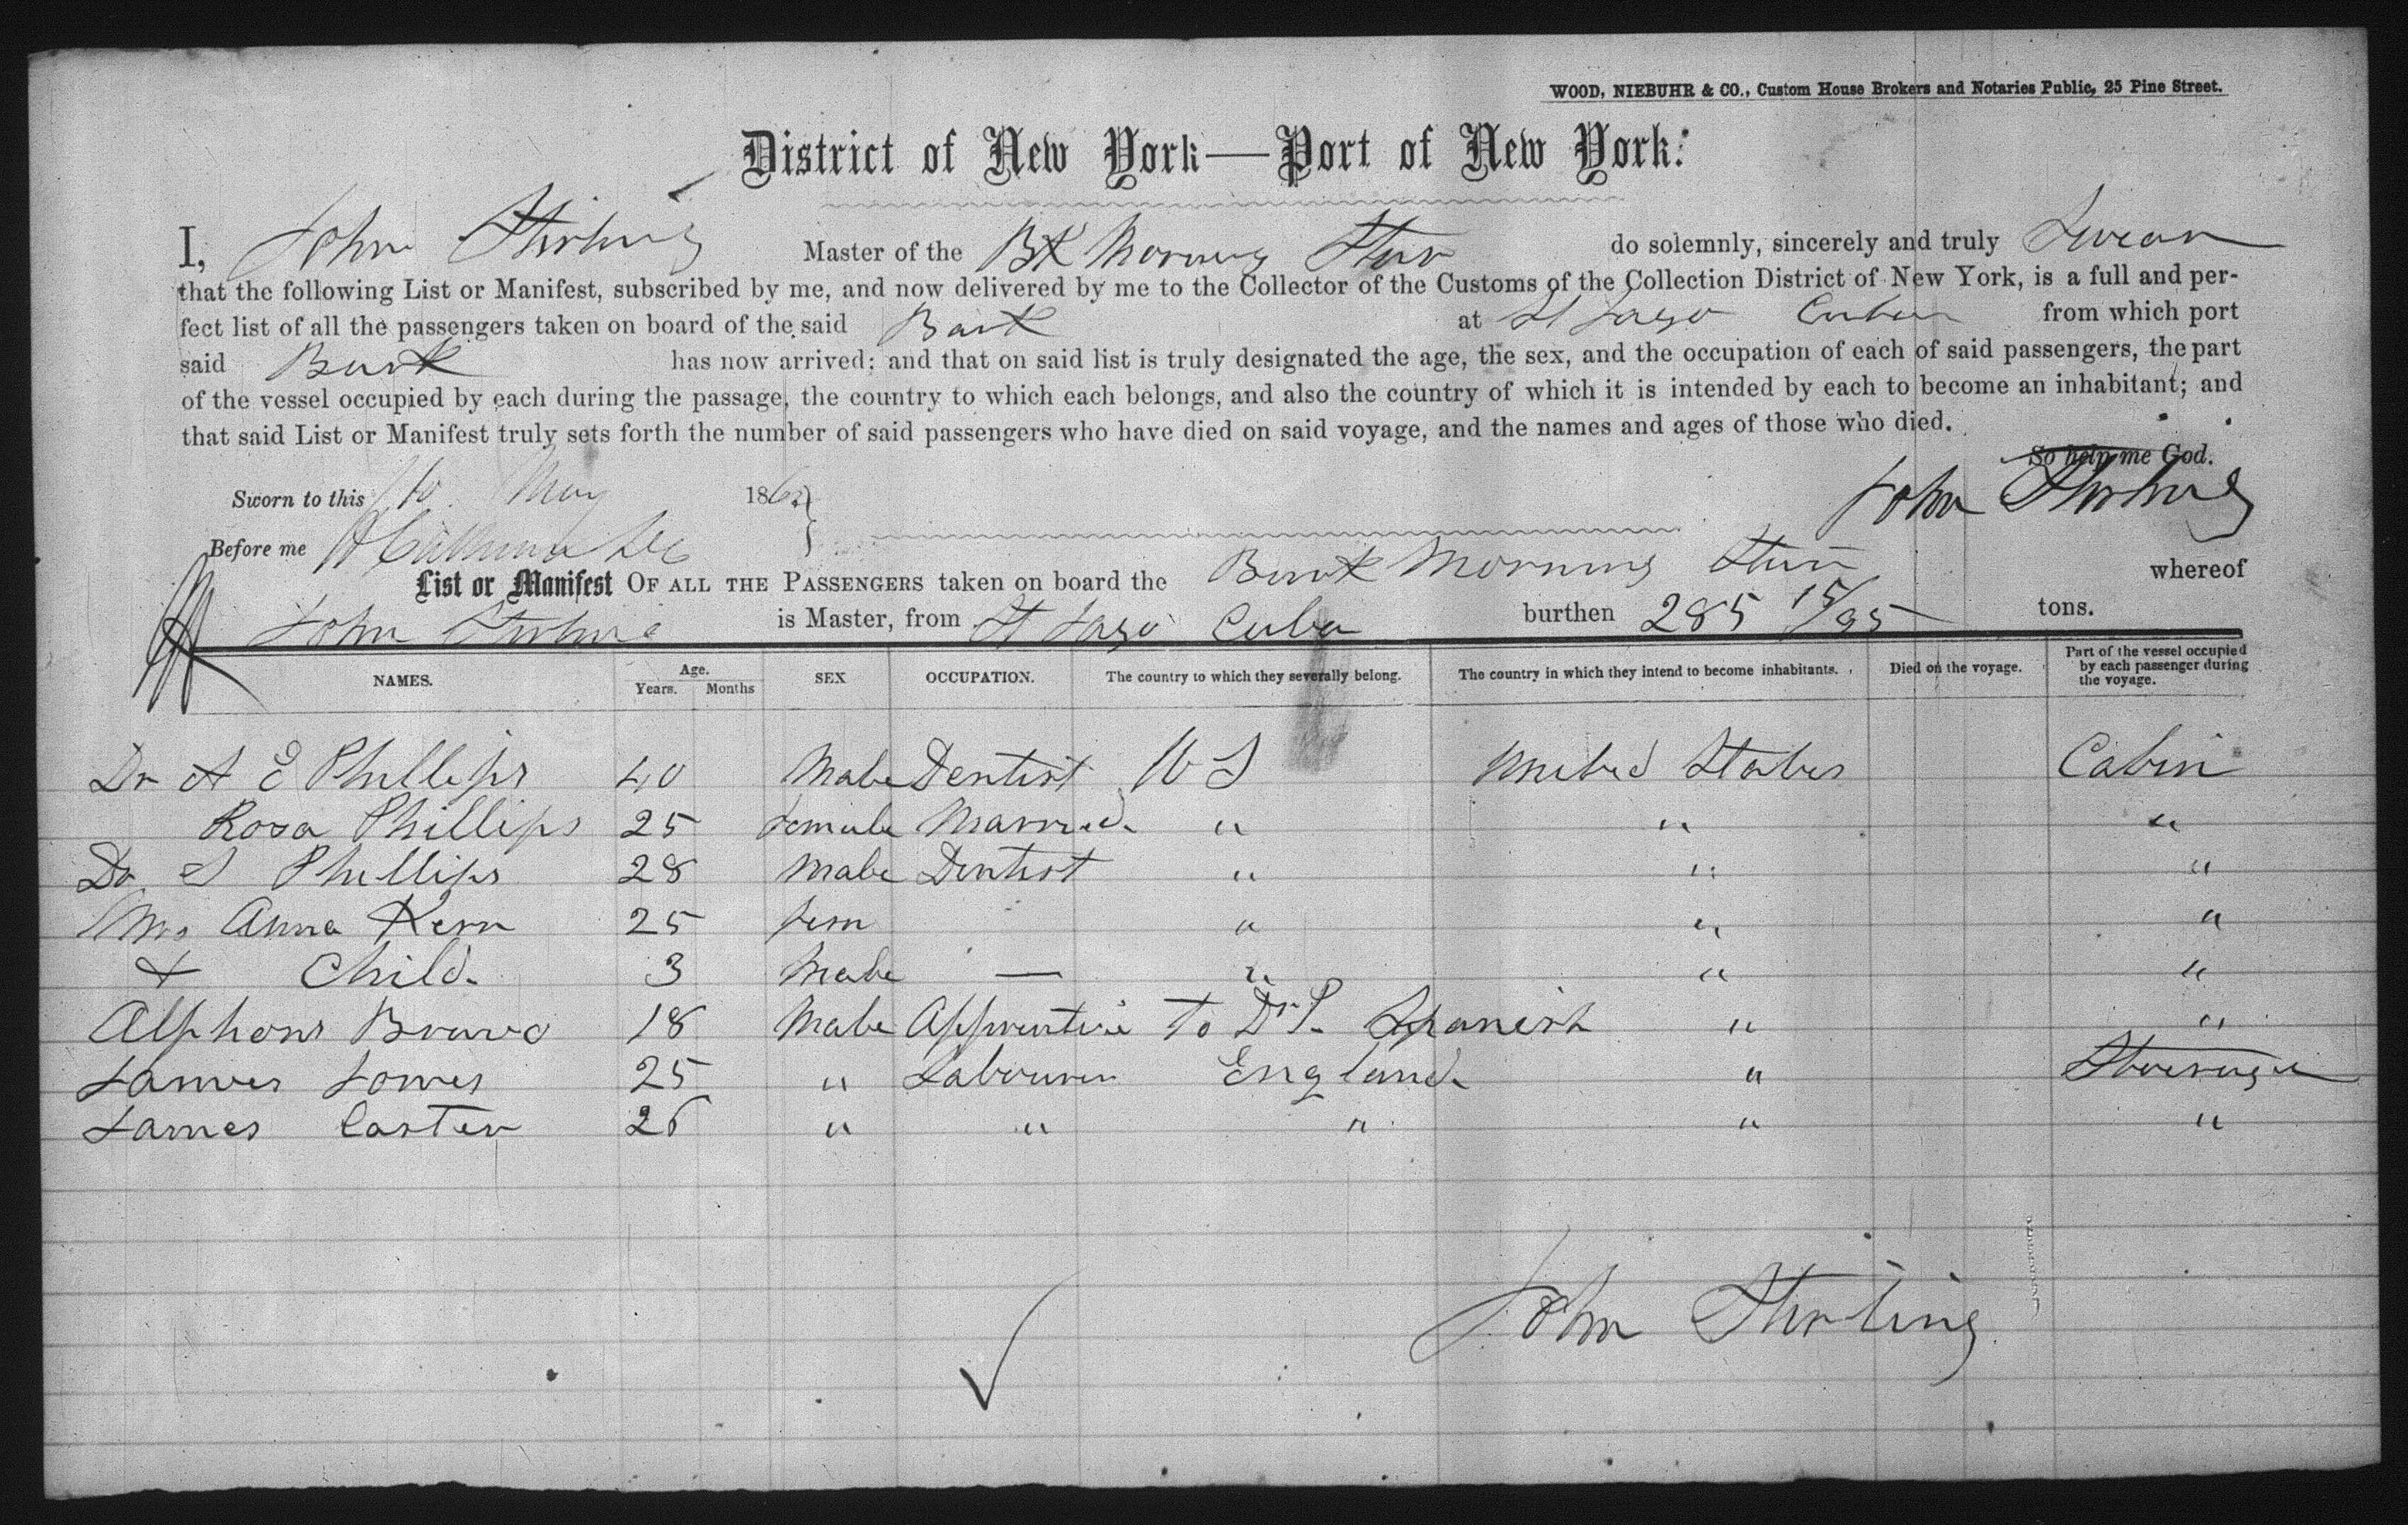 WOOD, NIEBUHR & CO., Custom House Brokers and Notaries Public, 25 Pine Street.
District of New York—Port of New York:
I, John Stirling Master of the Bk Morning Star do solemnly, sincerely and truly Swear
that the following List or Manifest, subscribed by me, and now delivered by me to the Collector of the Customs of the Collection District of New York, is a full and per-
fect list of all the passengers taken on board of the said Bark at St Iago Cuba from which port
said Bark has now arrived; and that on said list is truly designated the age, the sex, and the occupation of each of said passengers, the part
of the vessel occupied by each during the passage, the country to which each belongs, and also the country of which it is intended by each to become an inhabitant; and
that said List or Manifest truly sets forth the number of said passengers who have died on said voyage, and the names and ages of those who died.
So help me God.
Sworn to this 10 May 186 John Stirling
Before me
List or Manifest OF ALL THE PASSENGERS taken on board the Bark Morning Star whereof
John Stirling is Master, from St Iago Cuba burthen 285 15/95 tons.
NAMES. Age. Years. Months SEX OCCUPATION. The country to which they severally belong. The country in which they intend to become inhabitants. Died on the voyage. Part of the vessel occupied by each passenger during the voyage.
Dr A E Phillips 40 Male Dentist U S United States Cabin
Rosa Phillips 25 Female Married " " "
Dr S Phillips 28 Male Dentist " " "
Mrs Anna Kern 25 fem " " "
+ Child 3 Male — " " "
Alphons Bravo 18 Male Apprentice To Dr P. Spanish " "
James Jones 25 " Labourer England " Steerage
James Carter 26 " " " " "
John Stirling